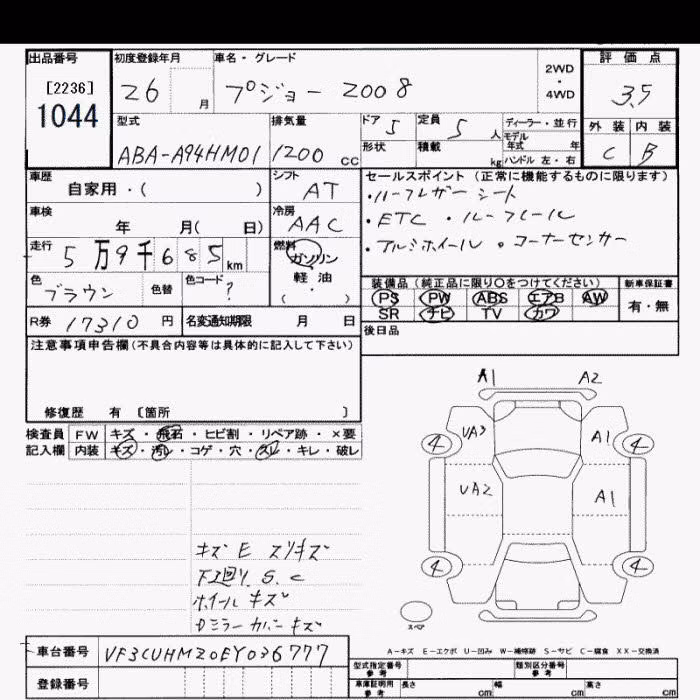 出品番号 初度登録年月 車名・グレード 2WD・4WD 評価点
[2236] 1044 26 月 プジョー 2008 3.5
型式 排気量 ドア 5 定員 5 人 ディーラー・並行 外装 内装
ABA-A94HM01 1200 cc 形状 積載 kg モデル年式 年 ハンドル 左・右 C B
車歴 シフト セールスポイント (正常に機能するものに限ります)
自家用・( ) AT ・ハーフレザーシート
車検 冷房 ・ETC ・ルーフレール
年 月( 日) AAC ・アルミホイール ・コーナーセンサー
走行 5万9千685km 燃料 ガソリン 軽・油 ( )
色 ブラウン 色替 色コード ? 装備品 (純正品に限り○をつけてください) 新車保証書
PS PW ABS エアB AW 有・無
SR ナビ TV カワ
R券 17310 円 名変通知期限 月 日 後日品
注意事項申告欄(不具合内容等は具体的に記入して下さい)
修復歴 有 〔箇所 〕
検査員 FW キズ・飛石・ヒビ割・リペア跡・×要
記入欄 内装 キズ・汚レ・コゲ・穴・スレ・キレ・破レ
A1 A2
4 UA3 A1 4
UA2 A1
4 4
スペア
キズ E スリキズ
下廻り S.C
ホイールキズ
Dミラーカバーキズ
A-キズ E-エクボ U-凹み W-補修跡 S-サビ C-腐食 XX-交換済
車台番号 VF3CUHMZ0EY036777
登録番号
型式指定番号 参考 類別区分番号 参考
車庫証明用 参考 長さ cm 幅 cm 高さ cm